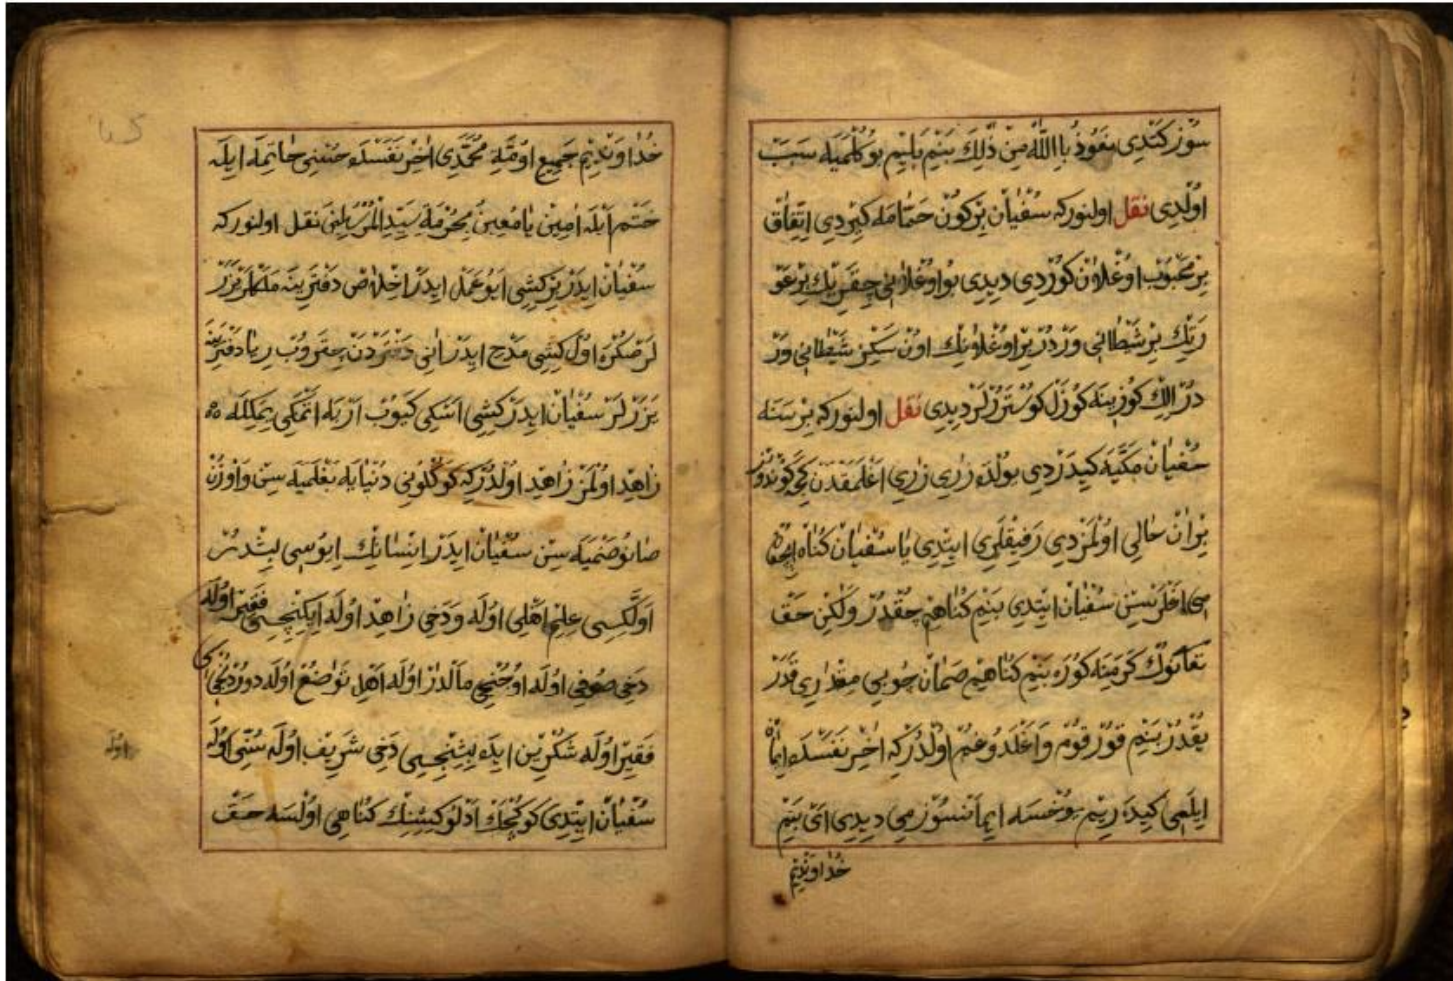 سُوزْ كَتْدِى نَعُوذُ بِاللّٰهِ مِنْ ذٰلِكَ بَنِمْ بِلِيمْ بُوكُلْمَيَه سَبَبْ
اوُلْدِى نقل اولنوركه سُفْيَانْ بِرْكُونْ حَمَّامَه كِيرْدِى اِتِّفَاقْ
بِرْ مَحْبُوبْ اوُغْلَانْ كُورْدِى دِيدِى بُو اوُغْلَانِى چِقَرِيكْ بِرْ عَوْ
رَتِكْ بِرْ شَيْطَانِى وَرْدُرْ بِرْ اوُغْلَانِكْ اوُنْ سَكِزْ شَيْطَانِى وَرْ
دُرْ اِلِكْ كُوزِينَه كُوزَلْ كُوسْتَرُرْلَرْ دِيدِى نقل اولنوركه بِرْ سَنَه
سُفْيَانْ مَكَّيَه كِيدَرْدِى يُولْدَه زَارِى زَارِى اَغْلَمَقْدَنْ كِجَه كُونْدُوزْ
بِرْ اَنْ خَالِى اوُلْمَزْدِى رَفِيقْلَرِى اَيِتْدِى يَا سُفْيَانْ كُنَاه
مى اَغْلَرْسِنْ سُفْيَانْ اَيِتْدِى بَنِمْ كُنَاهِمْ چُقْدُرْ وَلٰكِنْ حَقْ
تَعَالَنُوكْ كَرَمِنَه كُورَه بَنِمْ كُنَاهِمْ صَمَانْ چُوبِى مِقْدَارِى قَدَرْ
يُقْدُرْ بَنِمْ قُورْقُومْ وَاغْلَدُوغُمْ اوُلْدُرْكِه اٰخِرْ نَفَسْدَه اِيمَانْ
اِيلَەمِى كِيدَه رِيمْ يُوخْسَه اِيمَانْسُوزْمِى دِيدِى اَىْ بَنِمْ
خُدَاوَنْدِيمْ
خُدَاوَنْدِيمْ جَمِيعِ اوُمَّةِ مُحَمَّدِى اٰخِرْ نَفَسْدَه حُسْنِى خَاتِمَه اِيلَه
خَتْم اَيْلَه اٰمِينْ يَا مُعِينْ بِحُرْمَةِ سَيِّدِ الْمُرْسَلِينَ نقل اولنوركه
سُفْيَانْ اَيِدَرْ بِرْ كِشِى اَيُو عَمَلْ اَيِدَرْ اِخْلَاصْ دَفْتَرِينَه مَلَكْلَرْ يَزَرْ
لَرْ صُكْرَه اوُلْ كِشِى مَدْحْ اَيِدَرْ اَنِى دَفْتَرْدَنْ چِقَرُوبْ رِيَا دَفْتَرِينَه
يَزَرْلَرْ سُفْيَانْ اَيِدَرْ كِشِى اَسْكِى كَيُوبْ اَرْپَه اَتْمَكِى يَمَكِلَه
زَاهِدْ اوُلْمَزْ زَاهِدْ اوُلْدُرْكِه كُوكْلُونِى دُنْيَايَه بَغْلَمَيَه سِنْ وَاوُزُنْ
صَانُو صَنْمَيَه سِنْ سُفْيَانْ اَيِدَرْ اِنْسَانِكْ اَيُوسِى بِشْدُرْ
اَوَّلْكِسِى عِلِمْ اَهْلِى اوُلَه وَدَخِى زَاهِدْ اوُلَه اِيكِنْجِسِى فَقِيرْ اوُلَه
دَخِى صُوفِى اوُلَه اوُجُنْجِى مَالْدَارْ اوُلَه اَهْلِ تَوَاضُعْ اوُلَه دُورْدُنْجِى
فَقِيرْ اوُلَه شُكْرِينْ اَيِدَه بِشِنْجِسِى دَخِى شَرِيفْ اوُلَه سُنِّى اوُلَه
اوُلَه
سُفْيَانْ اَيِتْدِى كُوكْجَكْ اَدْلُو كِسْنِكْ كُنَاهِى اوُلْسَه حَقْ